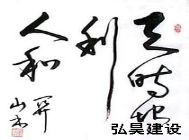 天时地
利
人和
弘昊建设